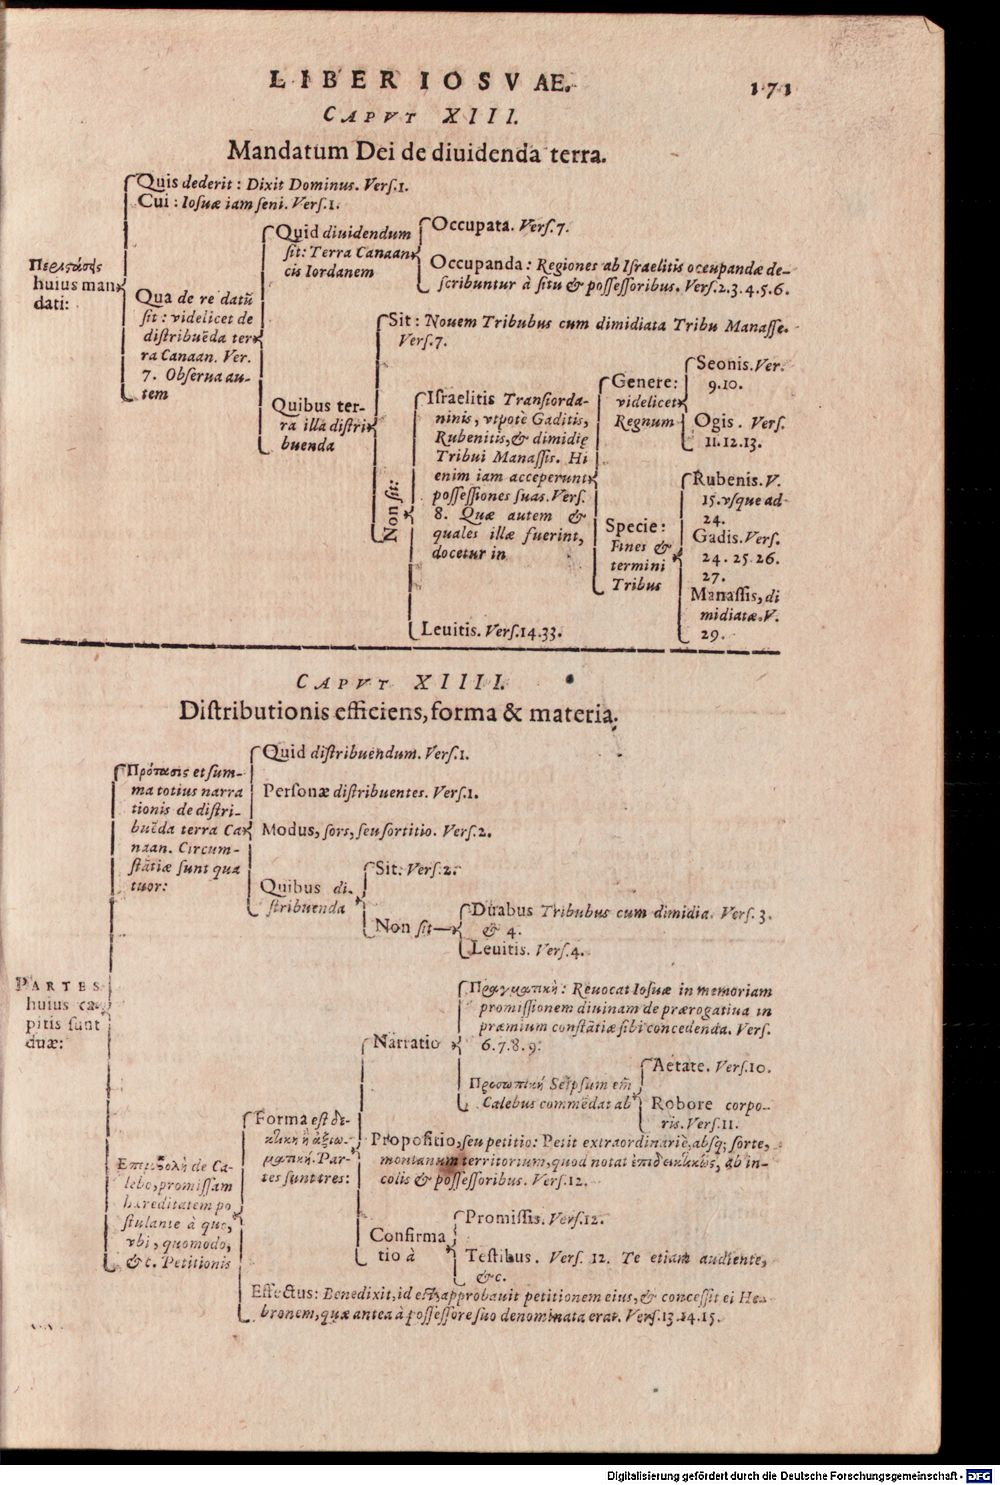 LIBER IOSVAE.
171
CAPVT XIII.
Mandatum Dei de diuidenda terra.
Περιστάσης
huius man
dati:
Quis dederit: Dixit Dominus. Verſ.1.
Cui: Ioſuæ iam ſeni. Verſ.1.
Qua de re datū
ſit: videlicet de
diſtribuēda ter
ra Canaan. Ver.
7. Obſerua au-
tem
Quid diuidendum
ſit: Terra Canaan
cis Iordanem
Occupata. Verſ.7.
Occupanda: Regiones ab Iſraelitis occupandæ de-
ſcribuntur à ſitu & poſſeſſoribus. Verſ.2.3.4.5.6.
Quibus ter-
ra illa diſtri
buenda
Sit: Nouem Tribubus cum dimidiata Tribu Manaſſe.
Verſ.7.
Non ſit:
Iſraelitis Transiorda-
ninis, vtpotè Gaditis,
Rubenitis, & dimidię
Tribui Manaſſis. Hi
enim iam acceperunt
poſſeſſiones ſuas. Verſ.
8. Quæ autem &
quales illæ fuerint,
docetur in
Genere:
videlicet
Regnum
Seonis. Ver.
9.10.
Ogis. Verſ.
11.12.13.
Specie:
Fines &
termini
Tribus
Rubenis. V.
15. vſque ad
24.
Gadis. Verſ.
24. 25. 26.
27.
Manaſſis, di
midiatæ. V.
29.
Leuitis. Verſ.14.33.
CAPVT XIIII.
Diſtributionis efficiens, forma & materia.
PARTES
huius ca-
pitis ſunt
duæ:
Πρότασις et ſum-
ma totius narra
tionis de diſtri-
buēda terra Ca
naan. Circum-
ſtātiæ ſunt qua
tuor:
Quid diſtribuendum. Verſ.1.
Perſonæ diſtribuentes. Verſ.1.
Modus, ſors, ſeu ſortitio. Verſ.2.
Quibus di-
ſtribuenda
Sit. Verſ.2.
Non ſit
Duabus Tribubus cum dimidia. Verſ.3.
& 4.
Leuitis. Verſ.4.
de Ca-
lebo, promiſſam
hæreditatem po
ſtulante à quo,
vbi, quomodo,
&c. Petitionis
Forma eſt δε-
κτικὴ ἢ ἀξιω-
ματική. Par-
tes ſunt tres:
Narratio
Πραγματικὴ: Reuocat Ioſuæ in memoriam
promiſſionem diuinam de prærogatiua in
præmium conſtātiæ ſibi concedenda. Verſ.
6.7.8.9.
Προσωπική Seipſum em̄
Calebus commēdat ab
Aetate. Verſ.10.
Robore corpo-
ris. Verſ.11.
Propoſitio, ſeu petitio: Petit extraordinariè, abſq; ſorte,
montanum territorium, quod notat ἐπιδεικτικῶς, ab in-
colis & poſſeſſoribus. Verſ.12.
Confirma
tio à
Promiſſis. Verſ.12.
Teſtibus. Verſ. 12. Te etiam audiente,
&c.
Effectus: Benedixit, id eſt, approbauit petitionem eius, & conceſſit ei He-
bronem, quæ antea à poſſeſſore ſuo denominata erat. Verſ.13.14.15.
Digitalisierung gefördert durch die Deutsche Forschungsgemeinschaft - DFG